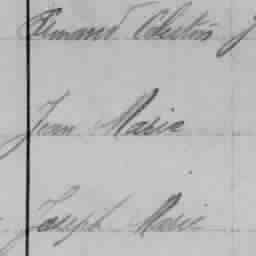 Armand Célestin J
Jean Marie
Joseph Marie